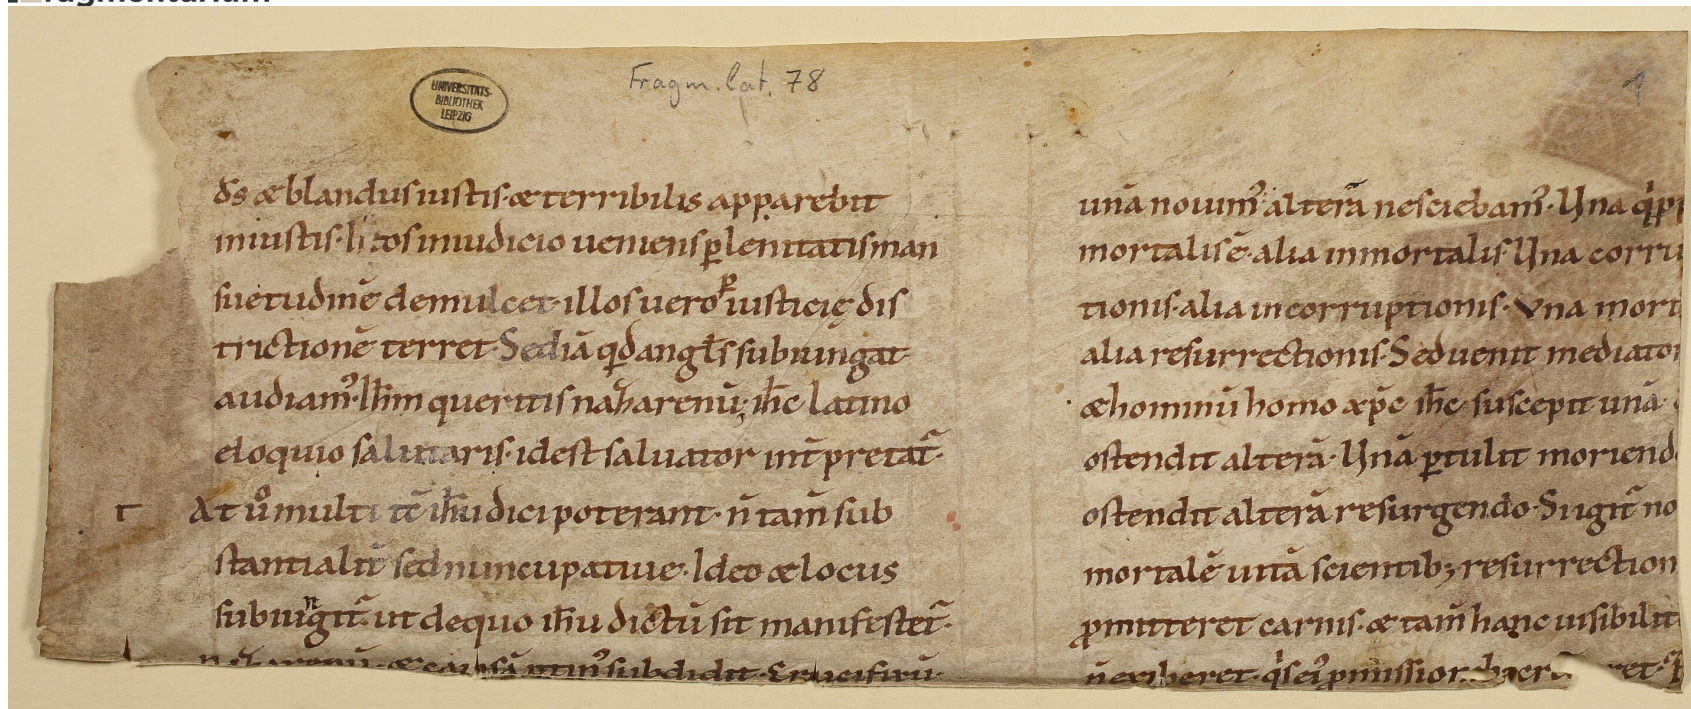 Fragmentarium
UNIVERSITÄTS-
BIBLIOTHEK
LEIPZIG
Fragm. lat. 78
1
ds̄ & blandus iustis· & terribilis apparebit
iniustis· li tos in iudicio ueniens ꝑ lenitatis man
suetudinē demulcet· illos uero ꝑ iusticię dis
trictionē terret· Sed iā qd angl̄s subiungat
audiamꝰ· Ih̄m queritis nazarenū; ih̄c latino
eloquio salutaris· id est saluator int̄pretat᷑·
t
At uͦ multi tē ih̄u dici poterant· n̄ tam̄ sub
stantialit̄ sed nuncupatiue· Ideo & locus
subiungit᷑· ut de quo ih̄u dictū sit manifestet᷑·
subdidit· Crucifixū·
unā nouimꝰ· alterā nesciebamꝰ· Una
mortalis ē· alia inmortalis· Una
tionis· alia incorruptionis· Una
alia resurrectionis· Sed uenit
& hominū homo xp̄c ih̄c· suscepit unā·
ostendit alterā· Unā ꝑtulit
ostendit alterā resurgendo· Si igit᷑
mortalē uitā scientibꝫ
ꝓmitteret carnis· & tam̄ hanc
n̄ exiberet·